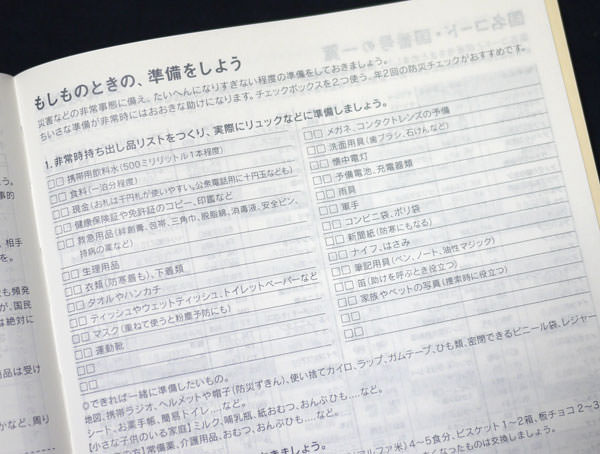 もしものときの、準備をしよう
災害などの非常事態に備え、たいへんになりすぎない程度の準備をしておきましょう。
ちいさな準備が非常時にはおおきな助けになります。チェックボックスを2つ使う、年2回の防災チェックがおすすめです。
1.非常時持ち出し品リストをつくり、実際にリュックなどに準備しましょう。
□□携帯用飲料水(500ミリリットル1本程度)
□□食料(一泊分程度)
□□現金(お札は千円札が使いやすい。公衆電話用に十円玉なども)
□□健康保険証や免許証のコピー、印鑑など
□□救急用品(絆創膏、包帯、三角巾、脱脂綿、消毒液、安全ピン、
持病の薬など)
□□生理用品
□□衣類(防寒着も)、下着類
□□タオルやハンカチ
□□ティッシュやウェットティッシュ、トイレットペーパーなど
□□マスク(重ねて使うと粉塵予防にも)
□□運動靴
□□
□□
□□メガネ、コンタクトレンズの予備
□□洗面用具(歯ブラシ、石けんなど)
□□懐中電灯
□□予備電池、充電器類
□□雨具
□□軍手
□□コンビニ袋、ポリ袋
□□新聞紙(防寒にもなる)
□□ナイフ、はさみ
□□筆記用具(ペン、ノート、油性マジック)
□□笛(助けを呼ぶとき役立つ)
□□家族やペットの写真(捜索時に役立つ)
□□
□□
○できれば一緒に準備したいもの。
地図、携帯ラジオ、ヘルメットや帽子(防災ずきん)、使い捨てカイロ、ラップ、ガムテープ、ひも類、密閉できるビニール袋、レジャー
シート、お薬手帳、簡易トイレ….など。
【小さな子供のいる家庭】ミルク、哺乳瓶、紙おむつ、おんぶひも….など。
の方】常備薬、介護用品、おむつ、おんぶひも….など。
きましょう。
アルファ米)4〜5食分、ビスケット1〜2箱、板チョコ2〜3
なくなったものは交換しましょう。
う。
事的
相手
を。
も頻発
が、国民
は絶対に
商品は受け
かなど、周り